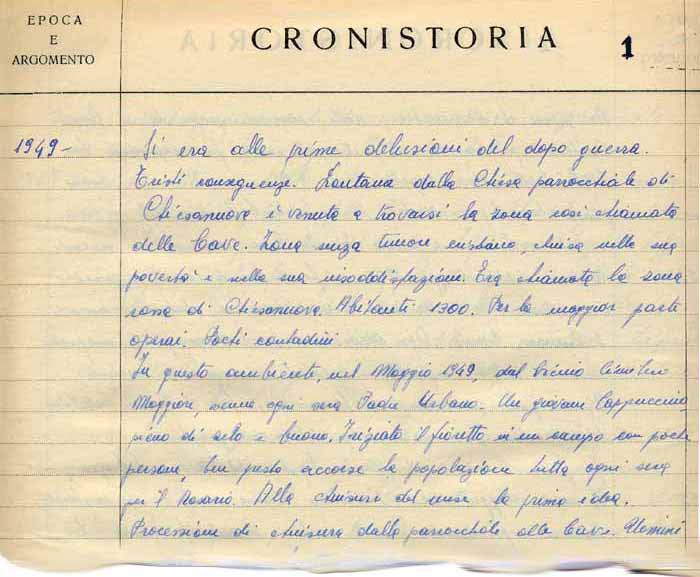 EPOCA
E
ARGOMENTO
CRONISTORIA
1
1949 - Si era alle prime delusioni del dopo guerra.
Tristi conseguenze. Lontana dalla Chiesa parrocchiale di
Chiesanuova è venuta a trovarsi la zona così chiamata
delle Cave. Zona senza timore cristiano, chiusa nella sua
povertà e nella sua insoddisfazione. Era chiamata la zona
rossa di Chiesanuova. Abitanti 1300. Per la maggior parte
operai. Pochi contadini.
In questo ambiente, nel Maggio 1949, dal vicino Cimitero
Maggiore, venne ogni sera Padre Urbano. Un giovane Cappuccino
pieno di zelo e buono. Iniziato il fioretto in un campo con poche
persone, ben presto accorse la popolazione tutta ogni sera
per il Rosario. Alla chiusura del mese la prima idea.
Processione di chiusura dalla parrocchiale alle Cave. Uomini